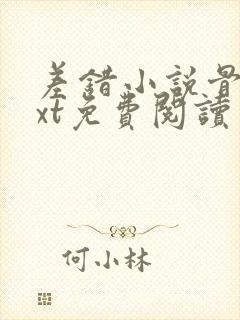 差錯小説最
xt免費閱讀
何小林